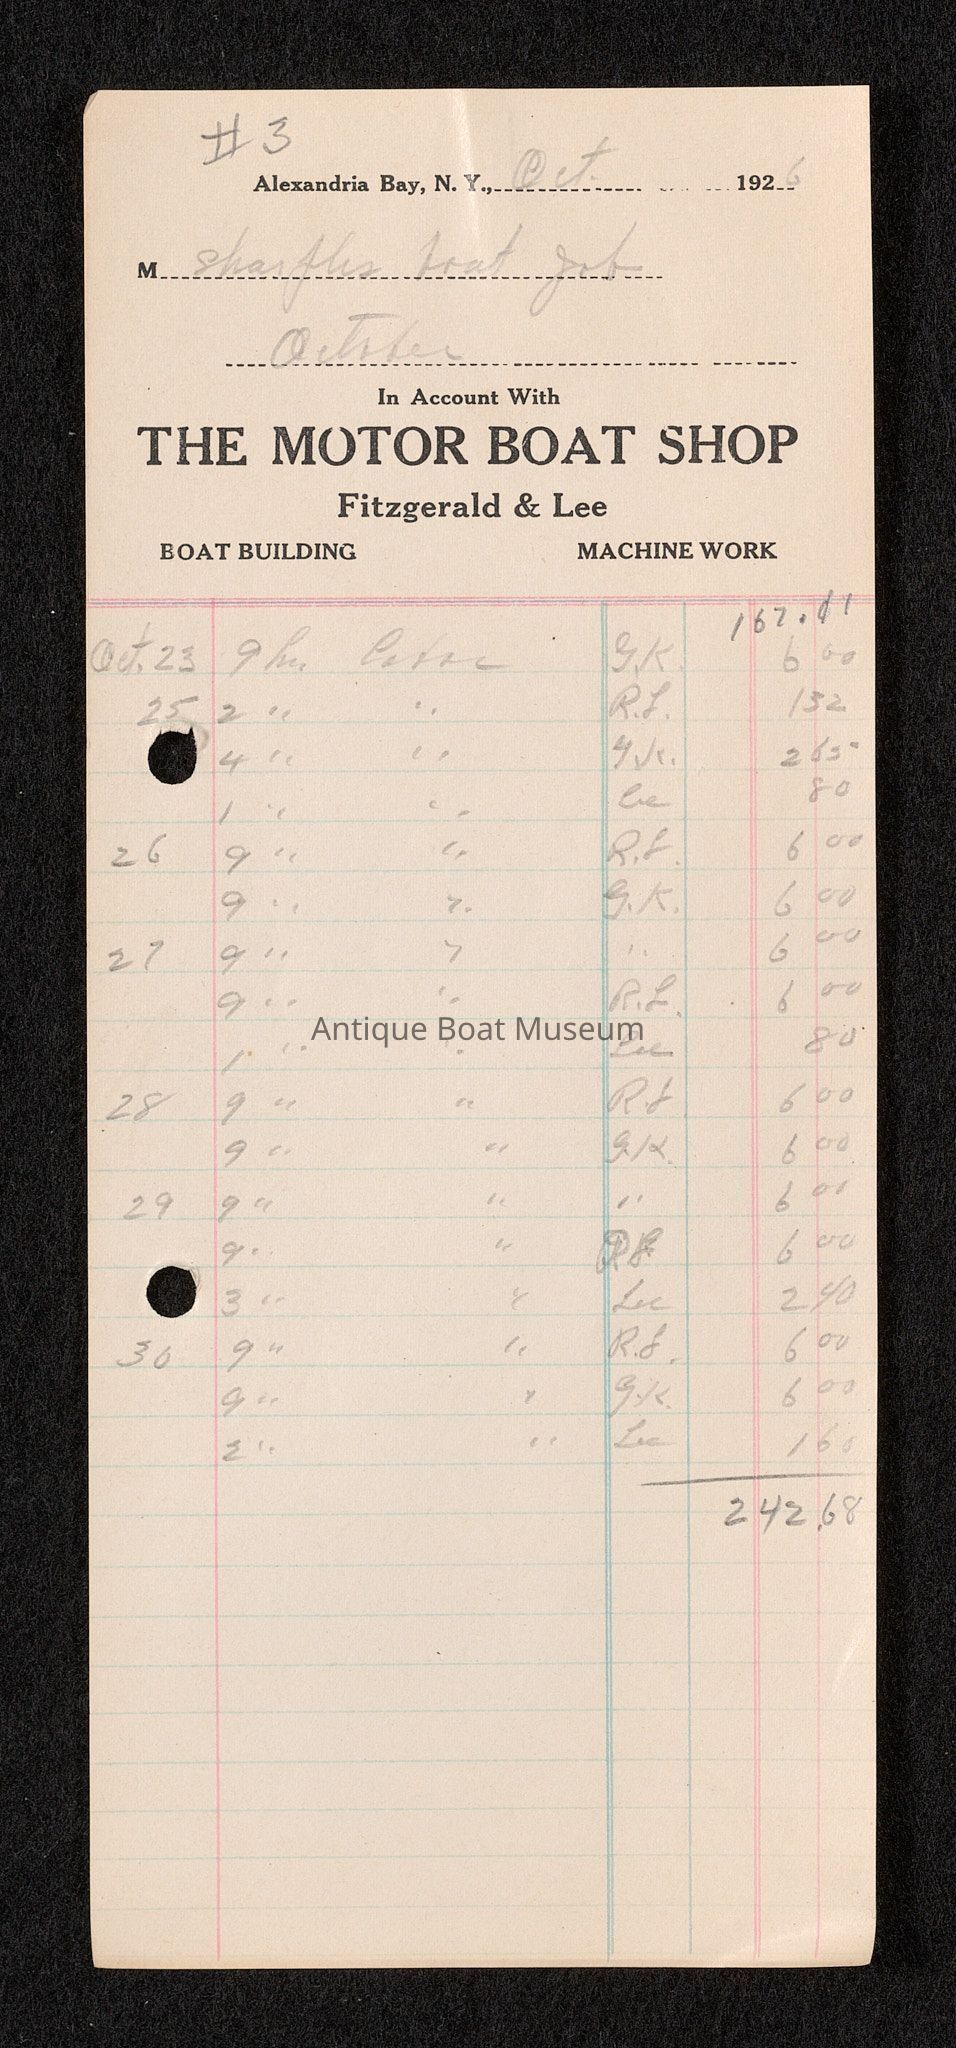 #3
Alexandria Bay, N. Y., Oct. 1926
M Sharples boat job
October
In Account With
THE MOTOR BOAT SHOP
Fitzgerald & Lee
BOAT BUILDING MACHINE WORK
167.11
Oct. 23 9 hr. Labor G.K. 6 00
25 2 " " R.L. 1 32
4 " " G.K. 2 65
1 " " Lee 80
26 9 " " R.L. 6 00
9 " " G.K. 6 00
27 9 " " " 6 00
9 " " R.L. 6 00
Antique Boat Museum
1 " " Lee 80
28 9 " " R.L 6 00
9 " " G.K. 6 00
29 9 " " " 6 00
9 " " R.L 6 00
3 " " Lee 2 40
30 9 " " R.L. 6 00
9 " " G.K. 6 00
2 " " Lee 1 60
242.68